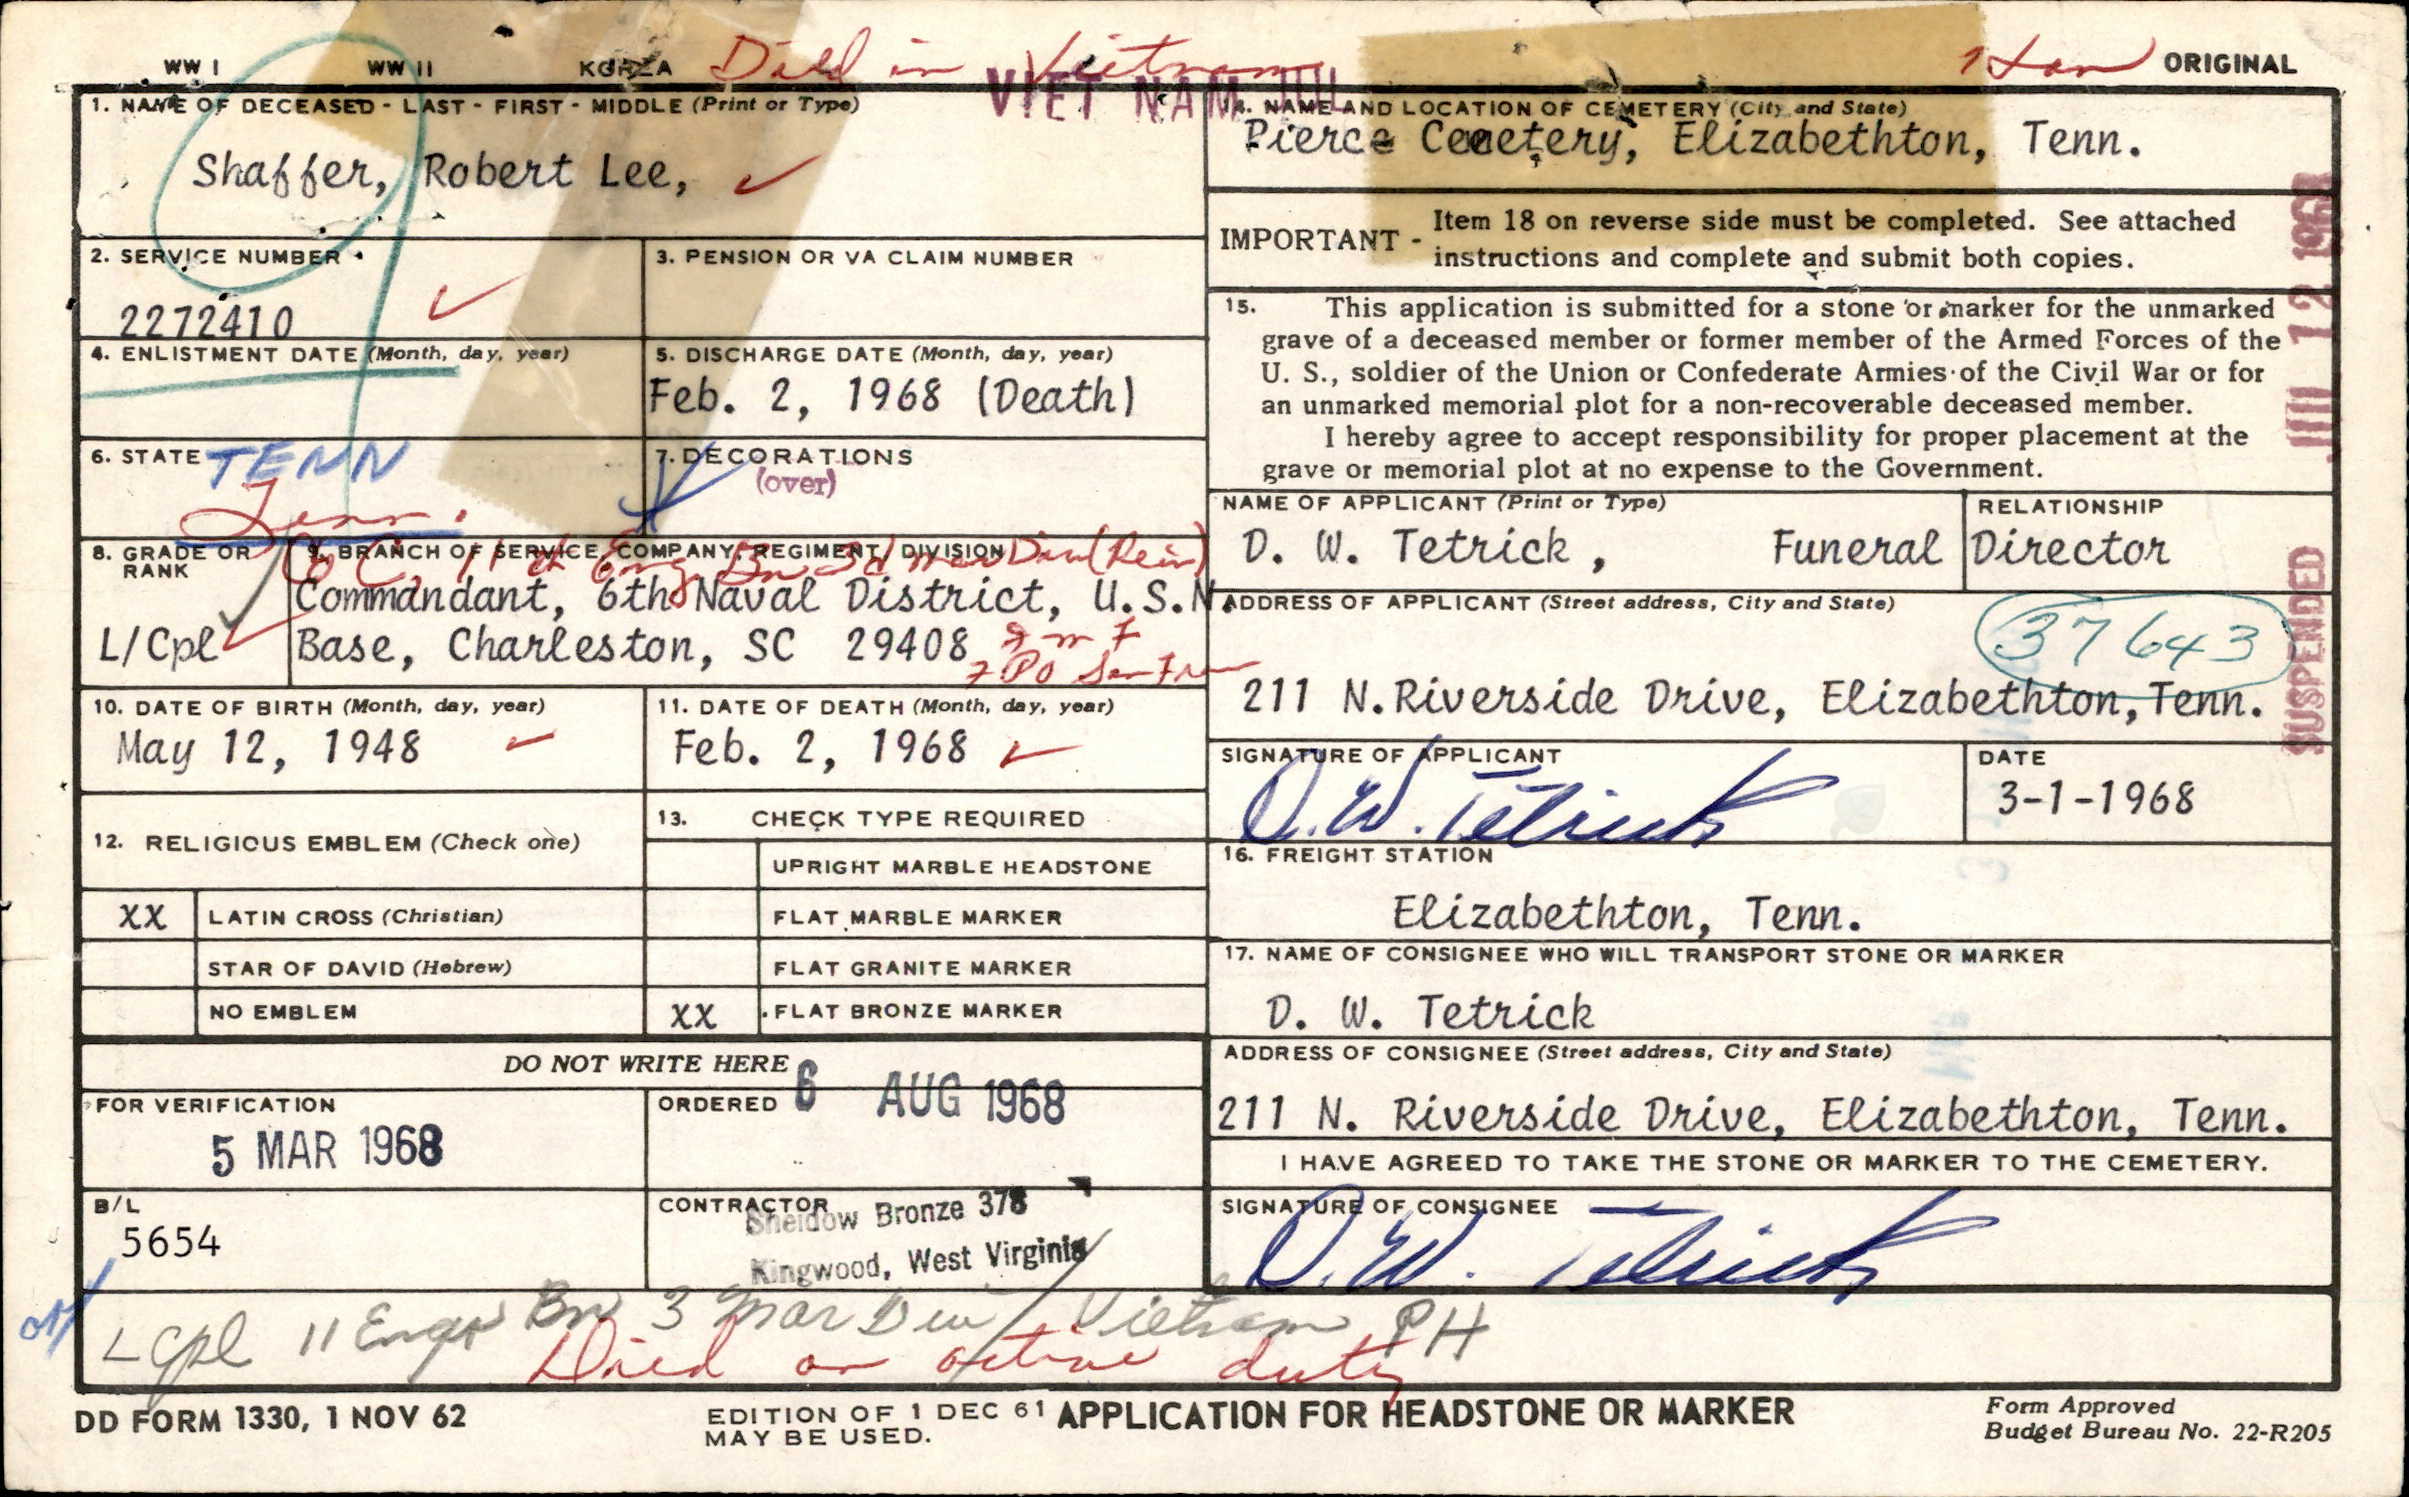 WW I WW II KOREA Died in Vietnam VIET NAM ORIGINAL
1. NAME OF DECEASED - LAST - FIRST - MIDDLE (Print or Type)
Shaffer, Robert Lee,
2. SERVICE NUMBER
2272410
3. PENSION OR VA CLAIM NUMBER
4. ENLISTMENT DATE (Month, day, year)
5. DISCHARGE DATE (Month, day, year)
Feb. 2, 1968 (Death)
6. STATE TENN
Tenn.
7. DECORATIONS
(over)
8. GRADE OR RANK
L/Cpl
9. BRANCH OF SERVICE, COMPANY, REGIMENT, DIVISION
Co C, 11th Eng Bn 3d Mar Div (Rein)
Commandant, 6th Naval District, U.S.N.
Base, Charleston, SC 29408
F M F
F P O San Fran
10. DATE OF BIRTH (Month, day, year)
May 12, 1948
11. DATE OF DEATH (Month, day, year)
Feb. 2, 1968
12. RELIGIOUS EMBLEM (Check one)
XX LATIN CROSS (Christian)
STAR OF DAVID (Hebrew)
NO EMBLEM
13. CHECK TYPE REQUIRED
UPRIGHT MARBLE HEADSTONE
FLAT MARBLE MARKER
FLAT GRANITE MARKER
XX FLAT BRONZE MARKER
DO NOT WRITE HERE
FOR VERIFICATION
5 MAR 1968
ORDERED 6 AUG 1968
B/L
5654
CONTRACTOR
Sheidow Bronze 378
Kingwood, West Virginia
14. NAME AND LOCATION OF CEMETERY (City and State)
Pierce Cemetery, Elizabethton, Tenn.
IMPORTANT - Item 18 on reverse side must be completed. See attached
instructions and complete and submit both copies.
15. This application is submitted for a stone or marker for the unmarked
grave of a deceased member or former member of the Armed Forces of the
U. S., soldier of the Union or Confederate Armies of the Civil War or for
an unmarked memorial plot for a non-recoverable deceased member.
I hereby agree to accept responsibility for proper placement at the
grave or memorial plot at no expense to the Government.
NAME OF APPLICANT (Print or Type) RELATIONSHIP
D. W. Tetrick, Funeral Director
ADDRESS OF APPLICANT (Street address, City and State)
37643
211 N. Riverside Drive, Elizabethton, Tenn.
SIGNATURE OF APPLICANT
D. W. Tetrick
DATE
3-1-1968
16. FREIGHT STATION
Elizabethton, Tenn.
17. NAME OF CONSIGNEE WHO WILL TRANSPORT STONE OR MARKER
D. W. Tetrick
ADDRESS OF CONSIGNEE (Street address, City and State)
211 N. Riverside Drive, Elizabethton, Tenn.
I HAVE AGREED TO TAKE THE STONE OR MARKER TO THE CEMETERY.
SIGNATURE OF CONSIGNEE
D. W. Tetrick
12 1968
SUSPENDED
L Cpl 11 Engr Bn 3 Mar Div / Vietnam PH
Died on active duty
DD FORM 1330, 1 NOV 62
EDITION OF 1 DEC 61
MAY BE USED.
APPLICATION FOR HEADSTONE OR MARKER
Form Approved
Budget Bureau No. 22-R205